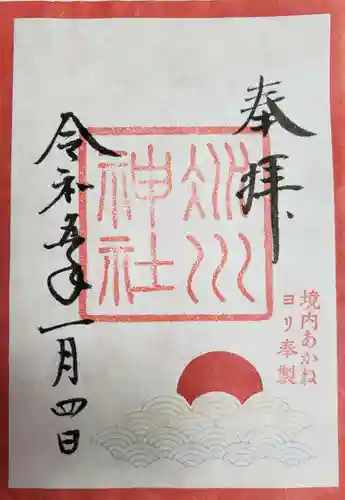 奉拝
境内あかね
ヨリ奉製
氷川
神社
令和五年一月四日